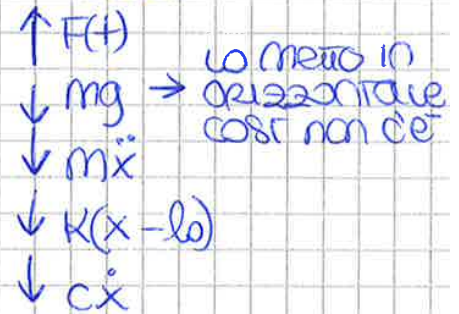 ↑ F(t)
↓ mg → lo metto in
orizzontale
così non c'è
↓ mẍ
↓ K(x - l₀)
↓ cẋ